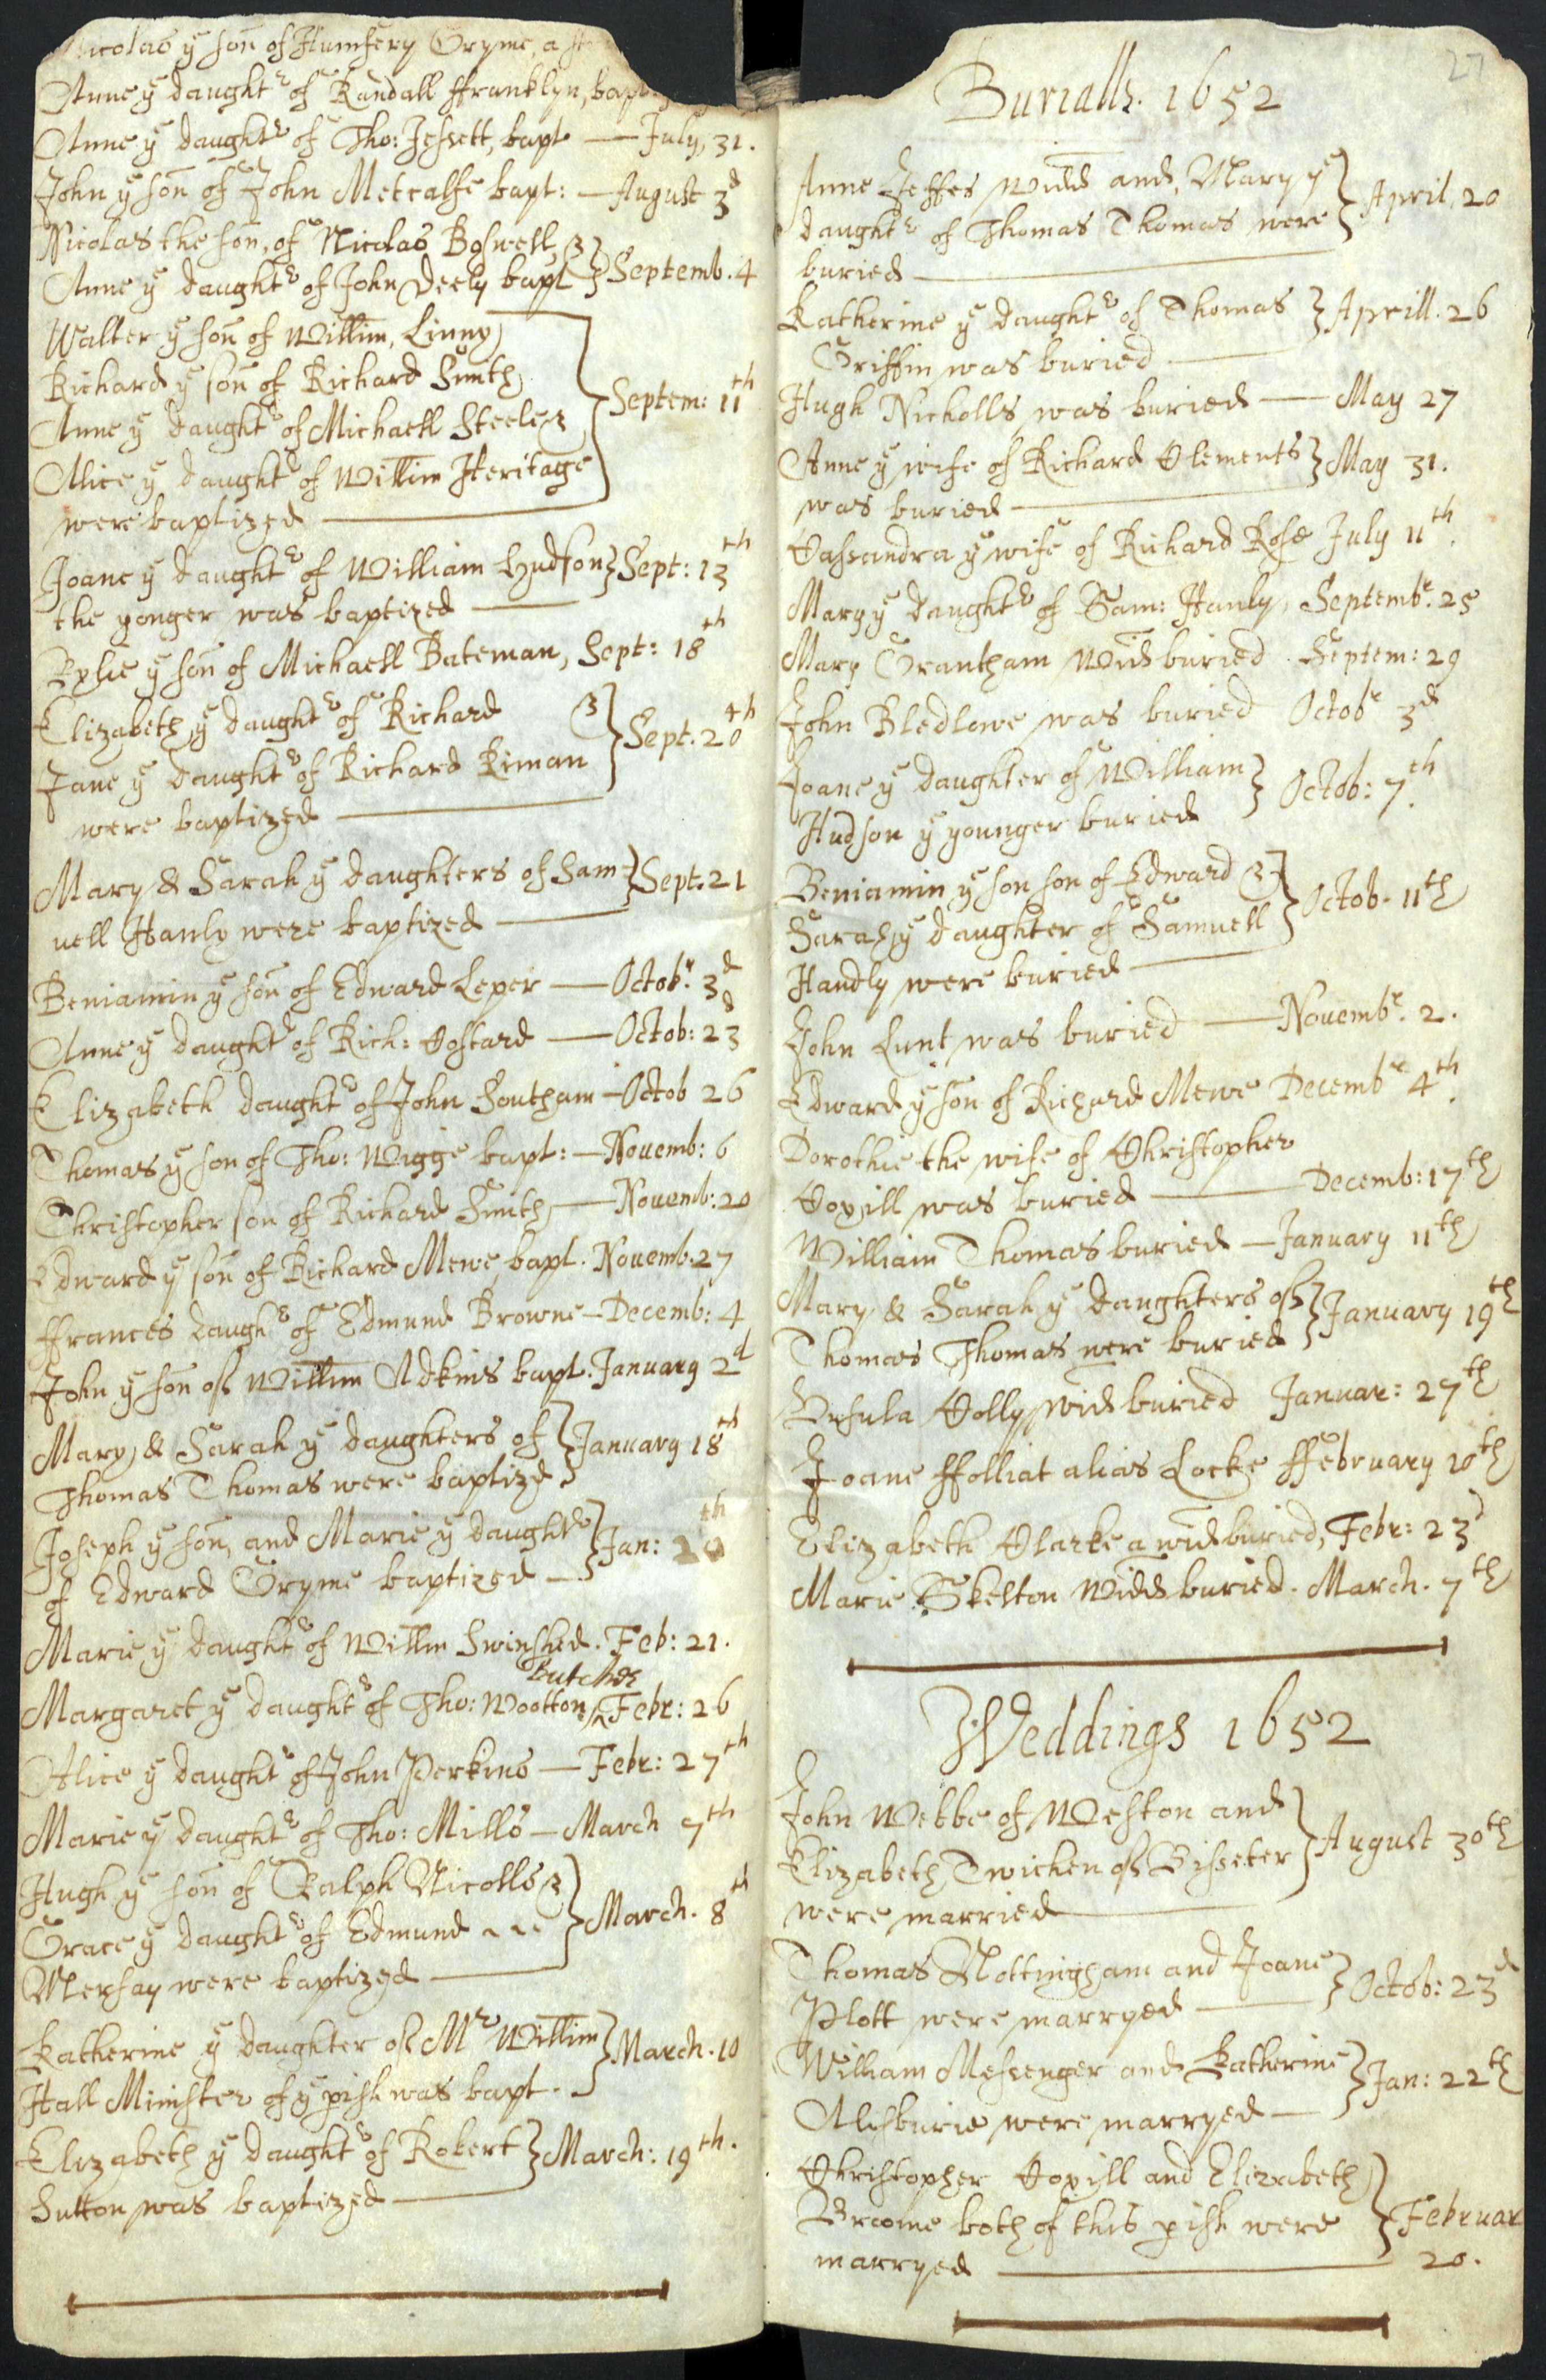 Nicolas yͤ son of Humfery Gryme, a
Anne yͤ daughtʳ of Randall ffranklyn, bapt
Anne yͤ daughtʳ of Tho: Jessett, bapt — July, 31.
John yͤ son of John Metcalfe bapt: — August 3ᵈ
Nicolas the son, of Nicolas Boswell &
Anne yͤ daughtʳ of John Deely bapt } Septemb. 4
Walter yͤ son of Willim, Linny
Richard yͤ son of Richard Smith
Anne yͤ daughtʳ of Michaell Steele &
Alice yͤ daught of Willim Heritage
were baptized — } Septem: 11ᵗʰ
Joane yͤ daughtʳ of William Hudson } Sept: 13ᵗʰ
the yonger was baptized —
yͤ son of Michaell Bateman, Sept: 18ᵗʰ
Elizabeth yͤ daughtʳ of Richard &
Jane yͤ daughtʳ of Richard Kiman } Sept. 20ᵗʰ
were baptized —
Mary & Sarah yͤ daughters of Sam } Sept. 21
uell Hanly were baptized —
Beniamin yͤ son of Edward Leper — Octobʳ. 3ᵈ
Anne yͤ daught of Rich: Costard — Octob: 23ᵈ
Elizabeth daughtʳ of John Southam — Octob 26
Thomas yͤ son of Tho: Wigge bapt: — Nouemb: 6
Christopher son of Richard Smith — Nouemb: 20
Edward yͤ son of Richard Mewe bapt. Nouemb. 27
ffrances daughʳ of Edmund Browne — Decemb: 4
John yͤ son of Willim Adkins bapt. January 2ᵈ
Mary & Sarah yͤ daughters of } January 18ᵗʰ
Thomas Thomas were baptizd
Joseph yͤ son, and Marie yͤ daughtʳ } Jan: 20ᵗʰ
of Edward Gryme baptized —
Marie yͤ daughtʳ of Willm Swinshed. Feb: 21.
Butcher
Margaret yͤ daughtʳ of Tho: Wootton ^ Febr: 26
Alice yͤ daughtʳ of John Perkins — Febr: 27ᵗʰ
Marie yͤ daughtʳ of Tho: Mills — March 7ᵗʰ
Hugh yͤ son of Ralph Nicolls &
Grace yͤ daughtʳ of Edmund } March. 8ᵗʰ
Mersay were baptized —
Katherine yͤ daughter of Mʳ Willim } March. 10
Hall Minister of yͤ pish was bapt.
Elizabeth yͤ daughtʳ of Robert } March: 19ᵗʰ.
Sutton was baptized —
27
Burialls. 1652
Anne Jeffes widd and, Mary yͤ
daughtʳ of Thomas Thomas were } April, 20
buried —
Katherine yͤ daughtʳ of Thomas } Aprill. 26
Griffin was buried —
Hugh Nicholls was buried — May 27
Anne yͤ wife of Richard Clements } May 31.
was buried —
Cassandra yͤ wife of Richard Rose July 11ᵗʰ.
Mary yͤ daughtʳ of Sam: Hanly, Septembʳ. 25
Mary Grantham Wid buried. Septem: 29
John Bledlowe was buried Octobʳ 3ᵈ
Joane yͤ daughter of William } Octob: 7ᵗʰ.
Hudson yͤ younger buried
Beniamin yͤ son son of Edward &
Sarah yͤ daughter of Samuell } Octob. 11ᵗʰ
Handly were buried —
John Lunt was buried — Nouembʳ. 2.
Edward yͤ son of Richard Mewe Decembʳ 4ᵗʰ.
Dorothie the wife of Christopher
Coxill was buried — Decemb: 17ᵗʰ
William Thomas buried — January 11ᵗʰ
Mary & Sarah yͤ daughters of } January 19ᵗʰ
Thomas Thomas were buried
Vrsula Colly wid buried Januar: 27ᵗʰ
Joane ffolliat alias Locke ffebruary 10ᵗʰ
Elizabeth Clarke a wid buried, Febr: 23ᵈ
Marie Skelton Widd buried. March. 7ᵗʰ
Weddings 1652
John Webbe of Weston and
Elizabeth Twicken of Bisseter } August 30ᵗʰ
were married —
Thomas Nottingham and Joane } Octob: 23ᵈ
Plott were marryed —
William Messenger and Katherine } Jan: 22ᵗʰ
Alesburie were marryed —
Christopher Coxill and Elizabeth
Broome both of this pish were } Februar
marryed — 20.